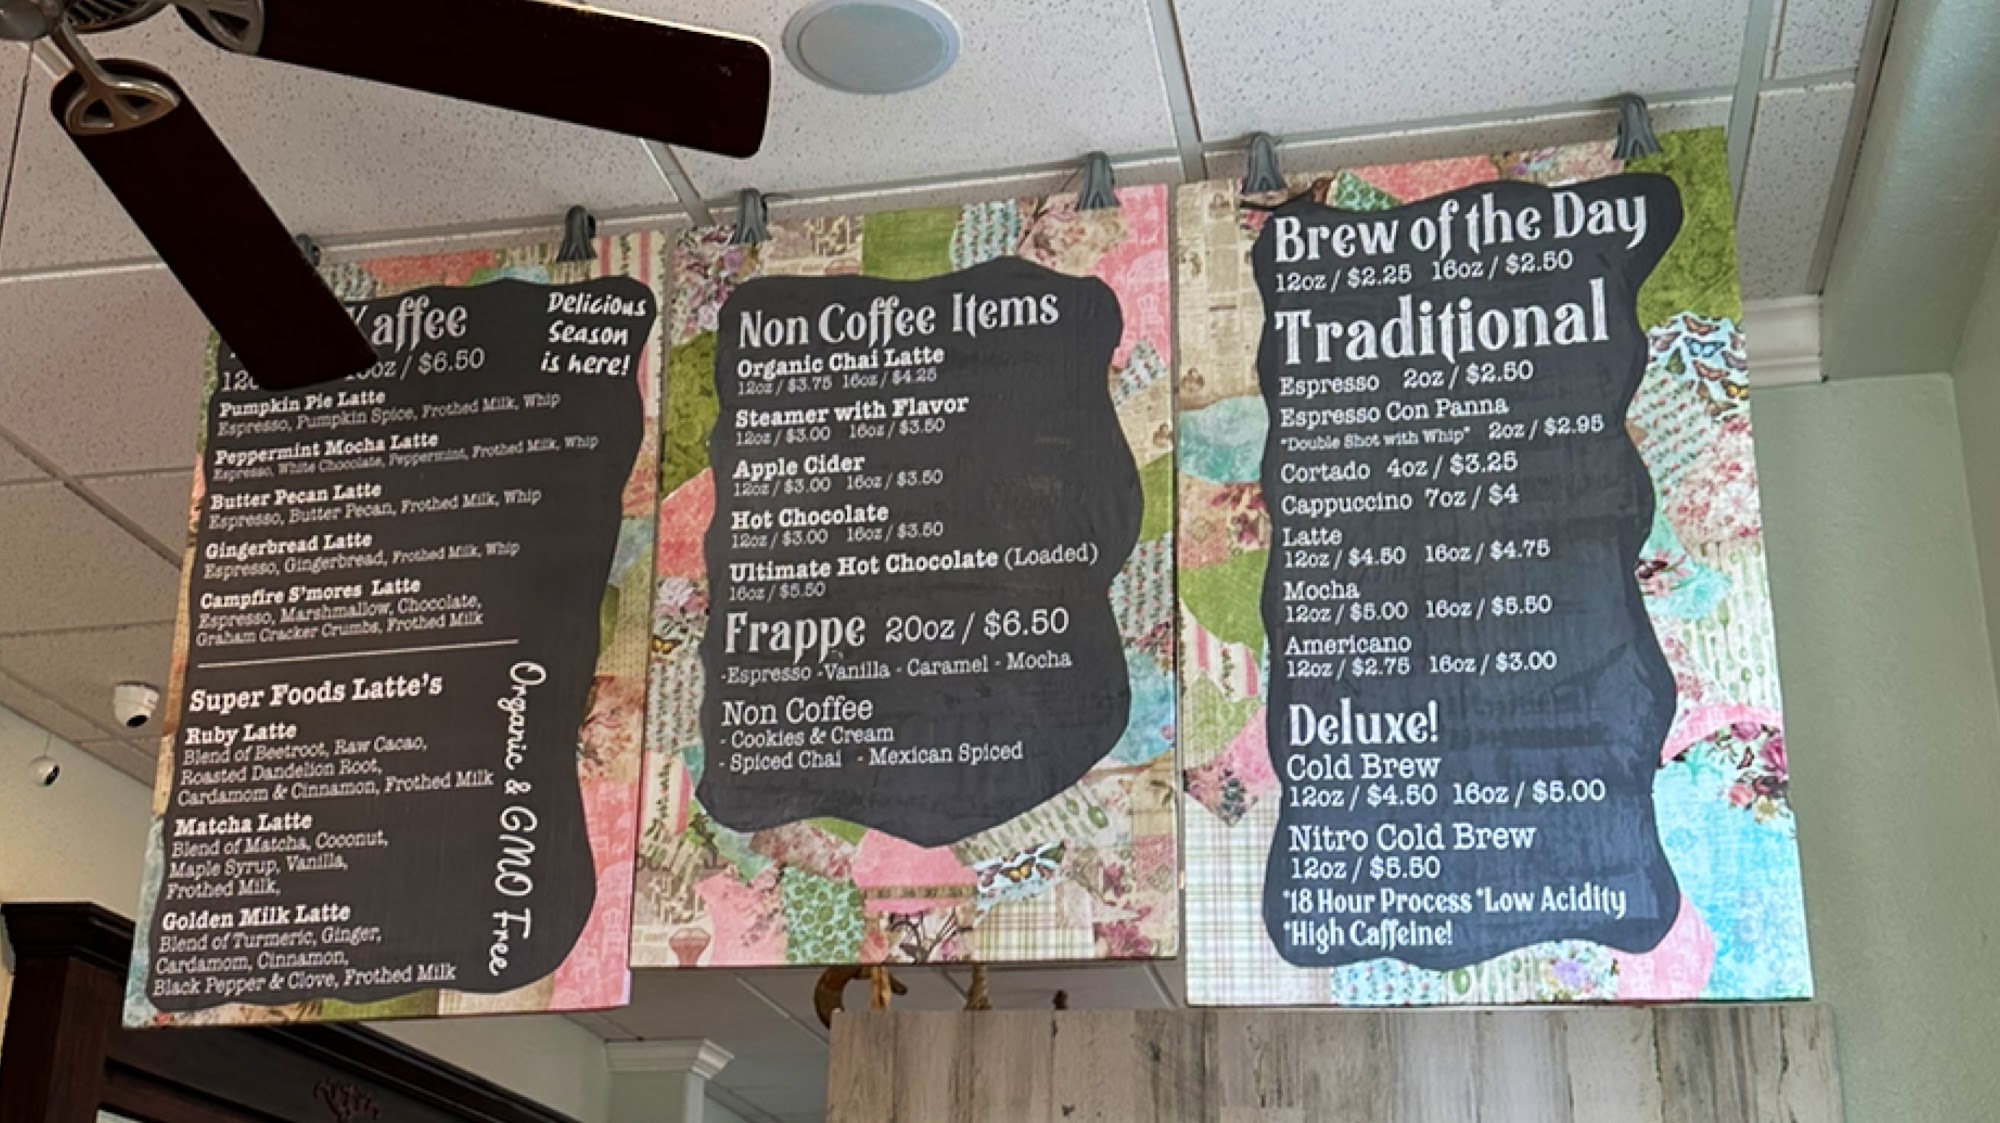 affee
Delicious
Season
is here!
oz / $6.50
Pumpkin Pie Latte
Espresso, Pumpkin Spice, Frothed Milk, Whip
Peppermint Mocha Latte
Espresso, White Chocolate, Peppermint, Frothed Milk, Whip
Butter Pecan Latte
Espresso, Butter Pecan, Frothed Milk, Whip
Gingerbread Latte
Espresso, Gingerbread, Frothed Milk, Whip
Campfire S'mores Latte
Espresso, Marshmallow, Chocolate,
Graham Cracker Crumbs, Frothed Milk
Super Foods Latte's
Ruby Latte
Blend of Beetroot, Raw Cacao,
Roasted Dandelion Root,
Cardamom & Cinnamon, Frothed Milk
Matcha Latte
Blend of Matcha, Coconut,
Maple Syrup, Vanilla,
Frothed Milk,
Golden Milk Latte
Blend of Turmeric, Ginger,
Cardamom, Cinnamon,
Black Pepper & Clove, Frothed Milk
Organic & GMO Free
Non Coffee Items
Organic Chai Latte
12oz / $3.75 16oz / $4.25
Steamer with Flavor
12oz / $3.00 16oz / $3.50
Apple Cider
12oz / $3.00 16oz / $3.50
Hot Chocolate
12oz / $3.00 16oz / $3.50
Ultimate Hot Chocolate (Loaded)
16oz / $5.50
Frappe 20oz / $6.50
-Espresso -Vanilla - Caramel - Mocha
Non Coffee
- Cookies & Cream
- Spiced Chai - Mexican Spiced
Brew of the Day
12oz / $2.25 16oz / $2.50
Traditional
Espresso 2oz / $2.50
Espresso Con Panna
"Double Shot with Whip" 2oz / $2.95
Cortado 4oz / $3.25
Cappuccino 7oz / $4
Latte
12oz / $4.50 16oz / $4.75
Mocha
12oz / $5.00 16oz / $5.50
Americano
12oz / $2.75 16oz / $3.00
Deluxe!
Cold Brew
12oz / $4.50 16oz / $5.00
Nitro Cold Brew
12oz / $5.50
*18 Hour Process *Low Acidity
*High Caffeine!